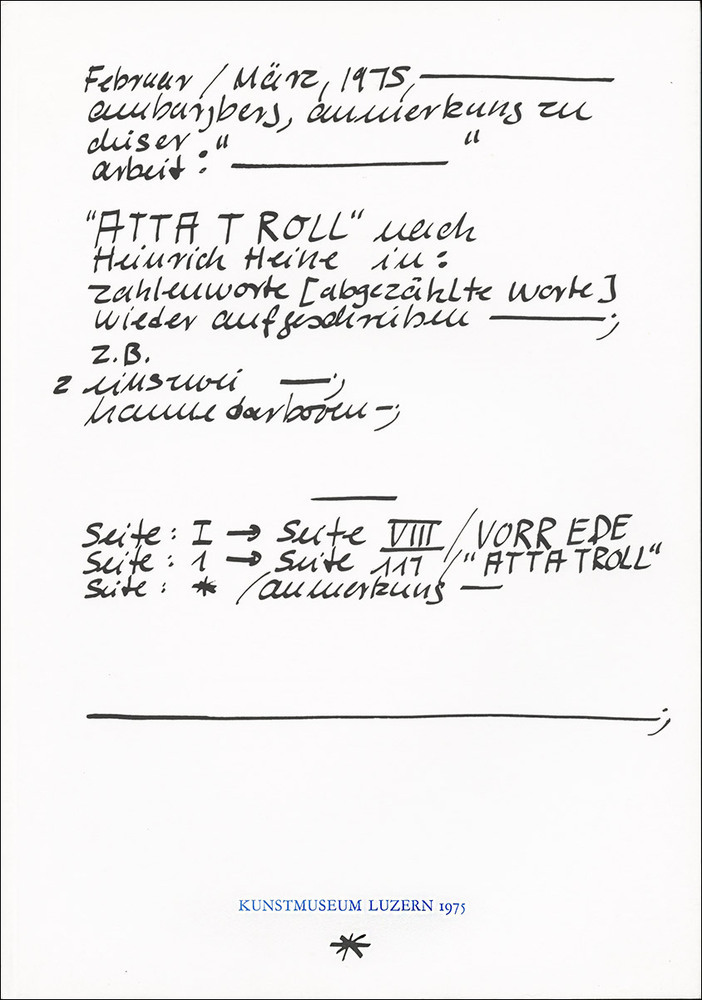 Februar / März, 1975, ———
am burgberg, anmerkung zu
dieser " "
arbeit : ———
"ATTA TROLL" nach
Heinrich Heine in :
zahlenworte [abgezählte worte]
wieder aufgeschrieben ——— ;
z.B.
2 einszwei — ;
hanne darboven - ;
—
Seite : I → Seite VIII / VORREDE
Seite : 1 → Seite 111 / "ATTA TROLL"
Seite : * / anmerkung —
——— ;
KUNSTMUSEUM LUZERN 1975
*